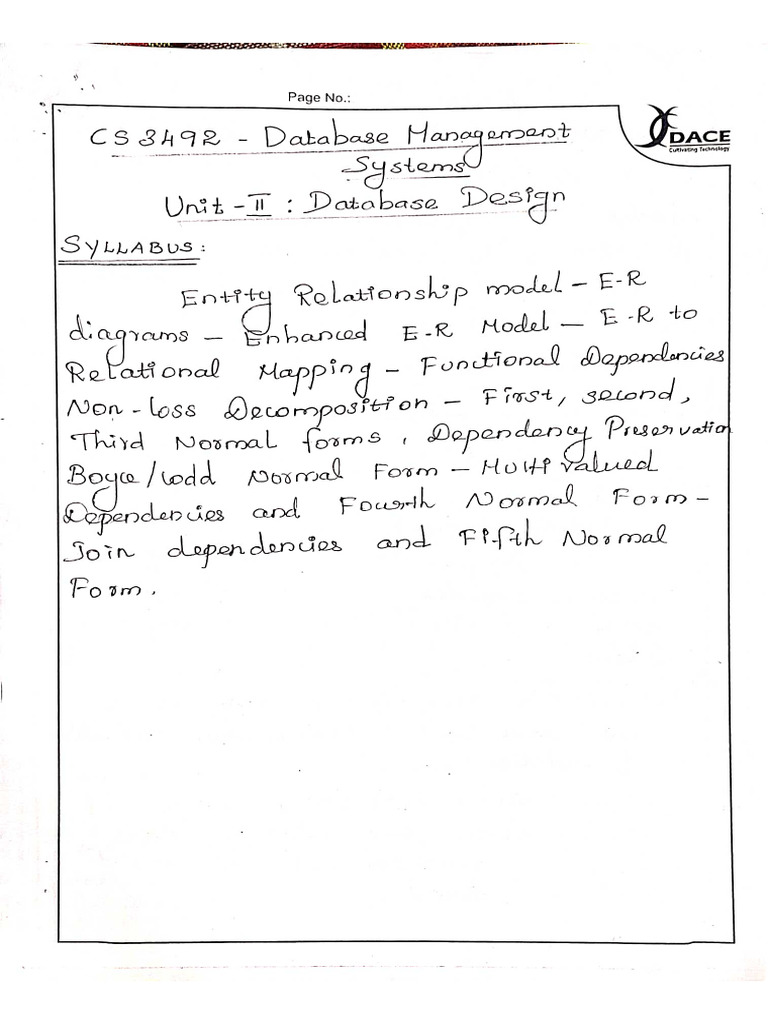 Page No.:
DACE
Cultivating Technology
CS3492 - Database Management
Systems
Unit - II : Database Design
SYLLABUS:
Entity Relationship model - E-R
diagrams - Enhanced E-R Model - E-R to
Relational Mapping - Functional Dependencies
Non-loss Decomposition - First, second,
Third Normal forms, Dependency Preservation
Boyce/Codd Normal Form - Multivalued
Dependencies and Fourth Normal Form -
Join dependencies and Fifth Normal
Form.